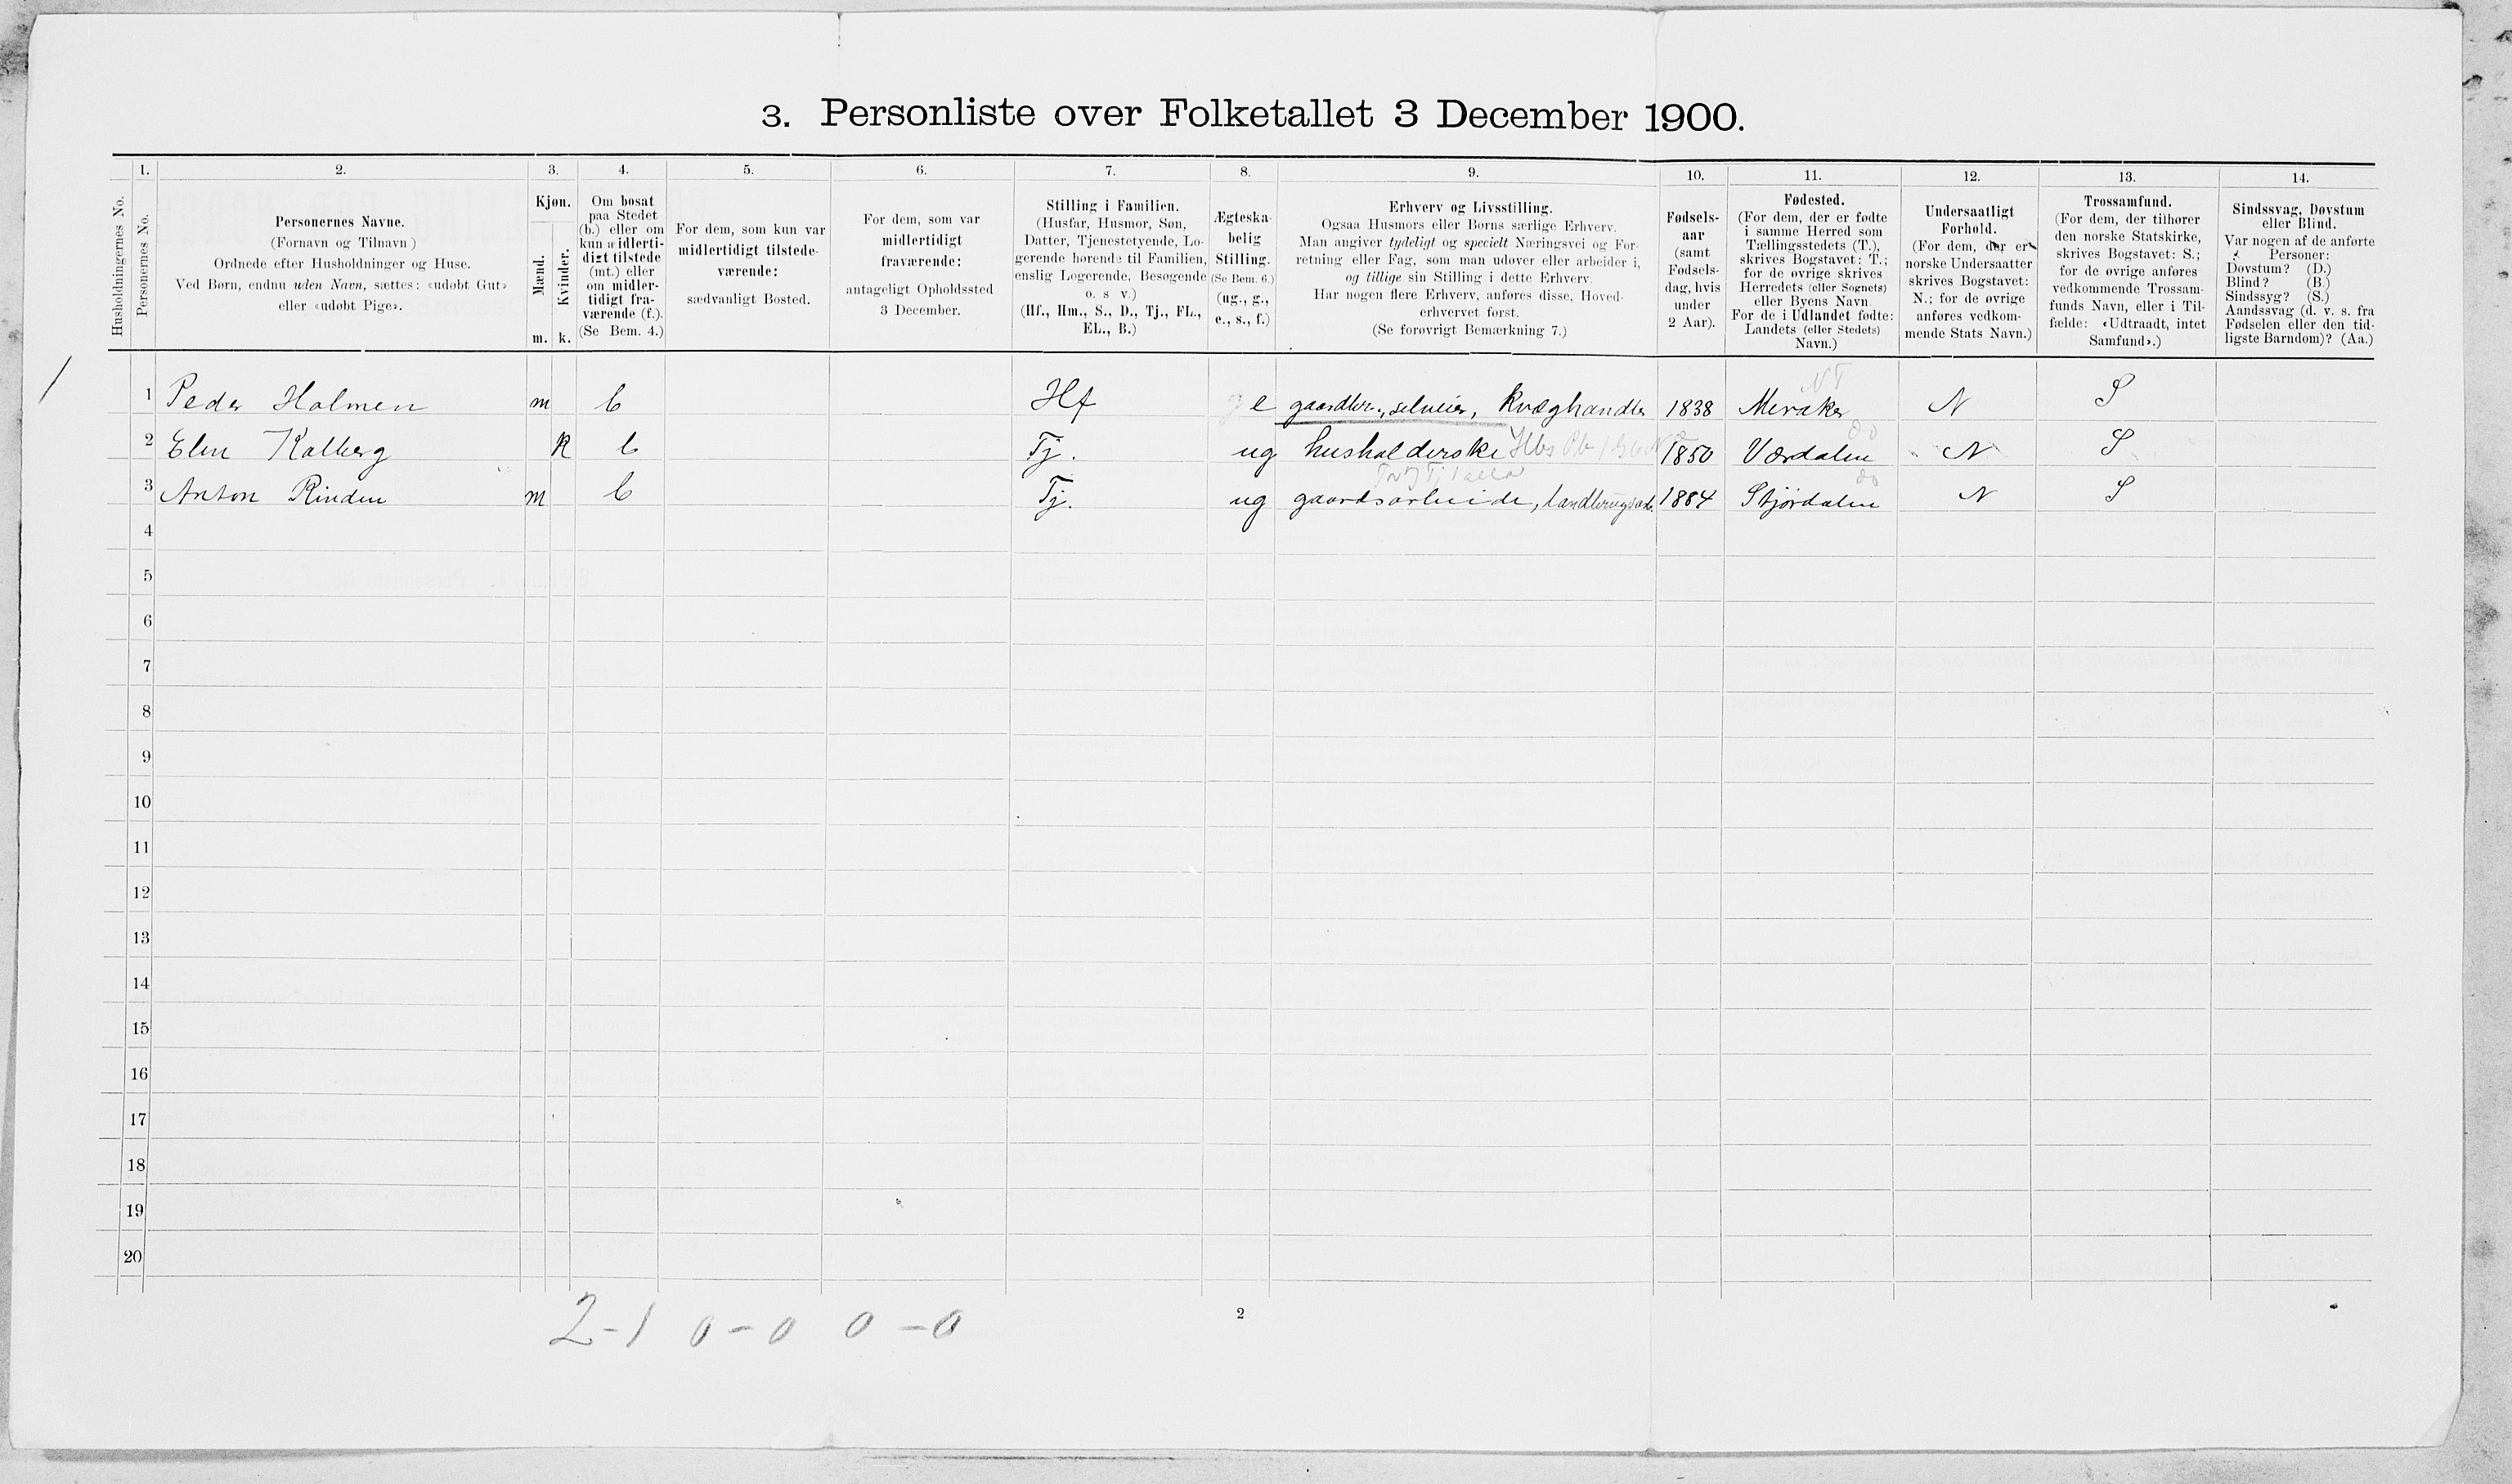 3. Personliste over Folketallet 3 December 1900.
Husholdningernes No.
1. Personernes No.
2. Personernes Navne.
(Fornavn og Tilnavn)
Ordnede efter Husholdninger og Huse.
Ved Børn, endnu uden Navn, sættes: «udøbt Gut»
eller «udøbt Pige».
3. Kjøn.
Mænd. Kvinder.
m. k.
4. Om bosat
paa Stedet
(b.) eller om
kun midlerti-
digt tilstede
(mt.) eller
om midler-
tidigt fra-
værende (f.).
(Se Bem. 4.)
5. For dem, som kun var
midlertidigt tilstede-
værende:
sædvanligt Bosted.
6. For dem, som var
midlertidigt
fraværende:
antageligt Opholdssted
3 December.
7. Stilling i Familien.
(Husfar, Husmor, Søn,
Datter, Tjenestetyende, Lo-
gerende hørende til Familien,
enslig Logerende, Besøgende
o. s. v.)
(Hf., Hm., S., D., Tj., FL.,
EL., B.)
8. Ægteska-
belig
Stilling.
(Se Bem. 6.)
(ug., g.,
e., s., f.)
9. Erhverv og Livsstilling.
Ogsaa Husmors eller Børns særlige Erhverv.
Man angiver tydeligt og specielt Næringsvei og For-
retning eller Fag, som man udøver eller arbeider i,
og tillige sin Stilling i dette Erhverv.
Har nogen flere Erhverv, anføres disse, Hoved-
erhvervet først.
(Se forøvrigt Bemærkning 7.)
10. Fødsels-
aar
(samt
Fødsels-
dag, hvis
under
2 Aar).
11. Fødested.
(For dem, der er fødte
i samme Herred som
Tællingsstedets (T.),
skrives Bogstavet: T.;
for de øvrige skrives
Herredets (eller Sognets)
eller Byens Navn.
For de i Udlandet fødte:
Landets (eller Stedets)
Navn.)
12. Undersaatligt
Forhold.
(For dem, der er
norske Undersaatter
skrives Bogstavet:
N.; for de øvrige
anføres vedkom-
mende Stats Navn.)
13. Trossamfund.
(For dem, der tilhører
den norske Statskirke,
skrives Bogstavet: S.;
for de øvrige anføres
vedkommende Trossam-
funds Navn, eller i Til-
fælde: «Udtraadt, intet
Samfund».)
14. Sindssvag, Døvstum
eller Blind.
Var nogen af de anførte
Personer:
Døvstum? (D.)
Blind? (B.)
Sindssyg? (S.)
Aandssvag (d. v. s. fra
Fødselen eller den tid-
ligste Barndom)? (Aa.)
NT
1 Peder Holmen m b Hf e gaardbr., selveier, kvæghandler 1838 Meraker N S
do
2 Elen Kalberg k b Tj. ug husholderske 1850 Værdalen N S
do
3 Anton Rinden m b Tj. ug gaardsarbeide, landbrugsarb. 1884 Stjørdalen N S
4
5
6
7
8
9
10
11
12
13
14
15
16
17
18
19
20
2-1 0-0 0-0
2